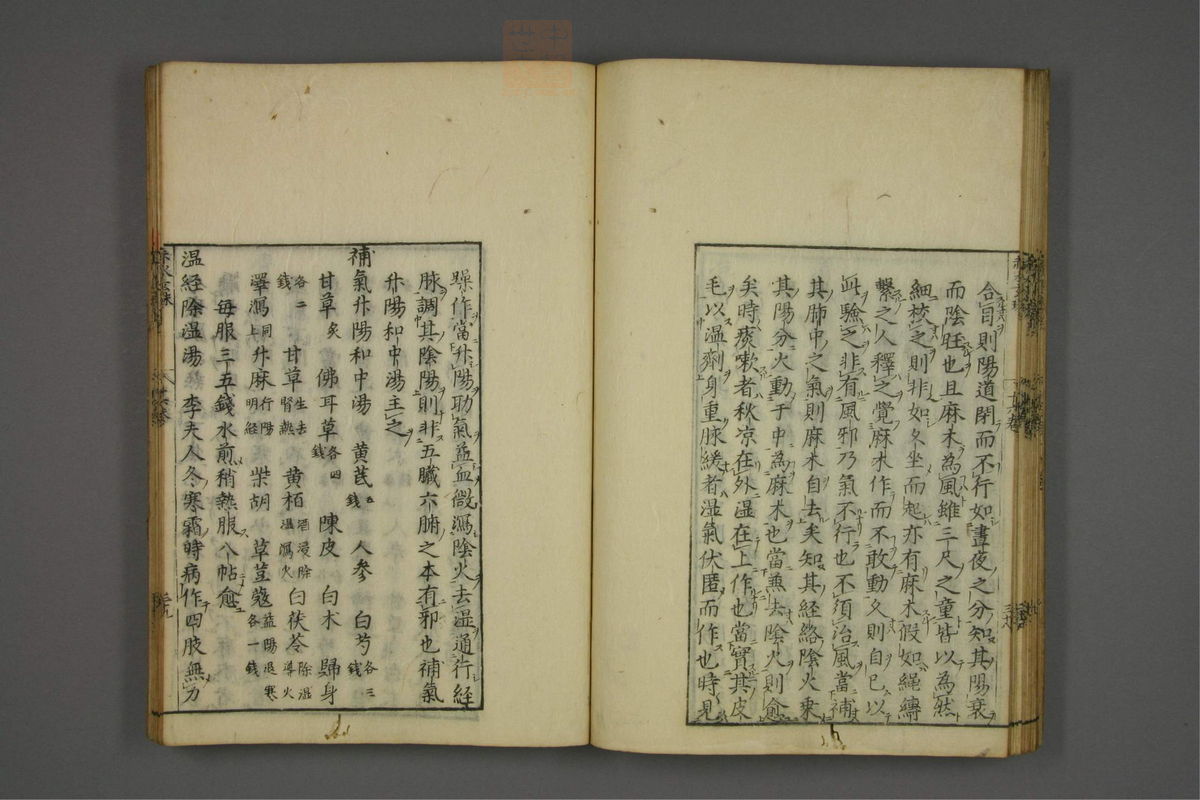 合目則陽道閉而不行如晝夜之分知其陽衰
而陰旺也且麻木為風雖三尺之童皆以為然
細校之則非如久坐而起亦有麻木假如繩縛
繫之人釋之覺麻木作而不敢動久則自已以
此驗之非有風邪乃氣不行也不須治風當補
其肺中之氣則麻木自去矣知其経絡陰火乗
其陽分火動于中為麻木也當兼去陰火則愈
矣時痰嗽者秋凉在外湿在上作也當實其皮
毛以温劑身重脉緩者湿氣伏匿而作也時見
躁作當升陽助氣益血微瀉陰火去湿通行経
脉調其陰陽則非五臓六腑之本有邪也補氣
升陽和中湯主之
補氣升陽和中湯 黄芪五錢 人参 白芍各三錢
甘草炙 佛耳草各四錢 陳皮 白术 歸身
各二錢 甘草生去腎熱 黄栢酒浸除湿瀉火 白茯苓除湿導火
澤瀉同上 升麻行陽明経 柴胡 草荳蔻益陽退寒各一錢
毎服三五錢水煎稍熱服八帖愈
温経除湿湯 李夫人冬寒霜時病作四肢無力